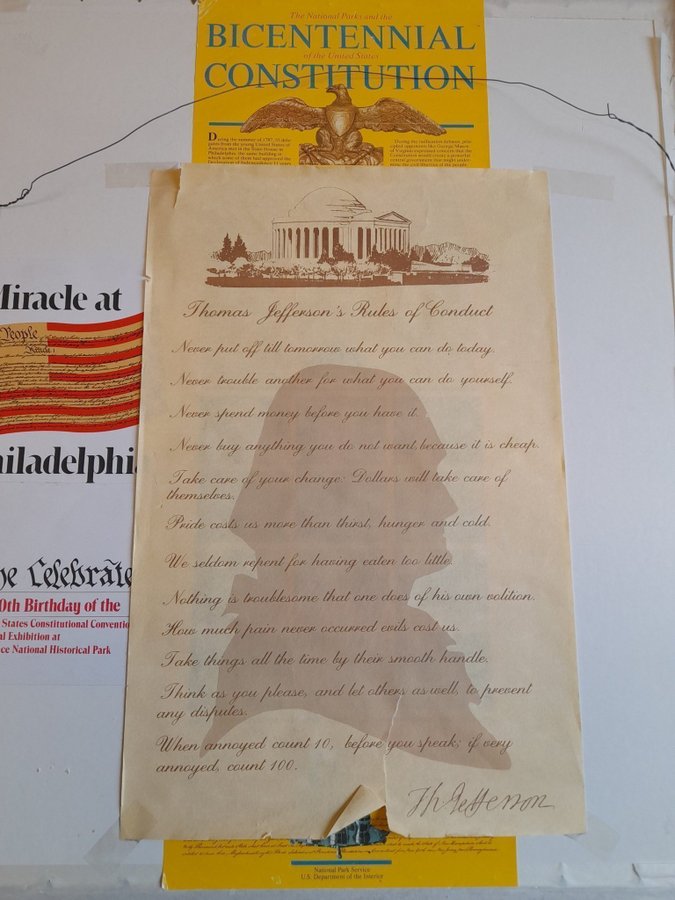 The National Parks and the
BICENTENNIAL
of the United States
CONSTITUTION
During the summer of 1787, 55 dele-
gates from the young United States of
America met in the State House in
Philadelphia, the same building in
which some of them had approved the
Declaration of Independence 11 years
During the ratification debates
opponents like George Mason
of Virginia expressed concern that the
Constitution would create a powerful
central government that might
the civil liberties of the people.
Miracle at
People
Article I
Philadelphi
Thomas Jefferson's Rules of Conduct
Never put off till tomorrow what you can do today.
Never trouble another for what you can do yourself.
Never spend money before you have it.
Never buy anything you do not want, because it is cheap.
Take care of your change: Dollars will take care of
themselves.
Pride costs us more than thirst, hunger and cold.
We seldom repent for having eaten too little.
Nothing is troublesome that one does of his own volition.
How much pain never occurred evils cost us.
Take things all the time by their smooth handle.
Think as you please, and let others as well, to prevent
any disputes.
When annoyed count 10, before you speak; if very
annoyed, count 100.
Th Jefferson
e Celebrate
0th Birthday of the
States Constitutional Conventio
al Exhibition at
ce National Historical Park
National Park Service
U.S. Department of the Interior